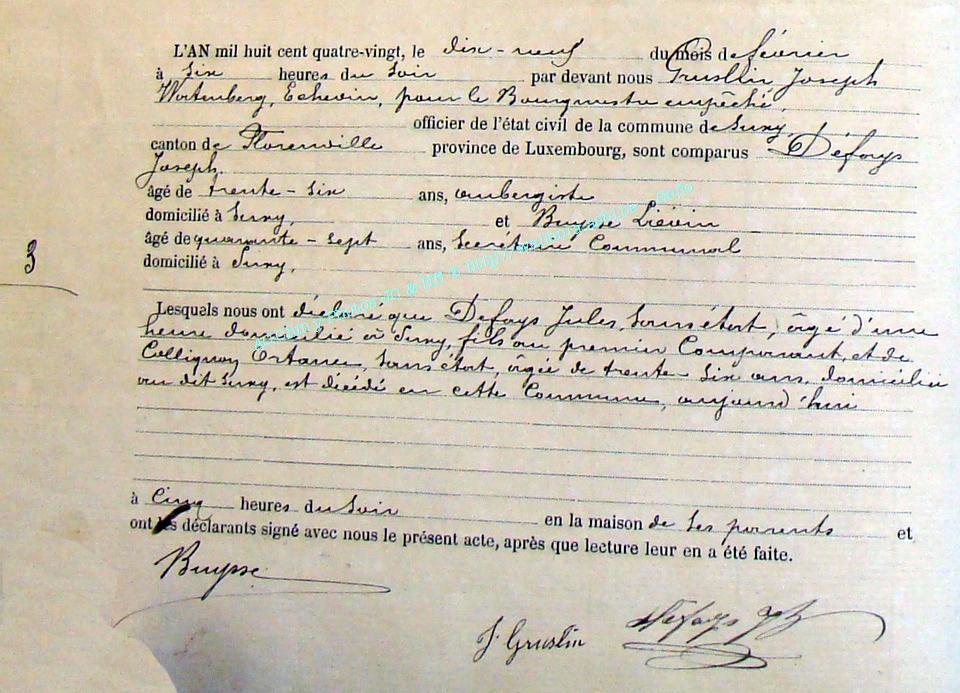 L'AN mil huit cent quatre-vingt, le dix-neuf du mois de février
à six heures du soir par devant nous Gruslin, Joseph
Echevin, pour le Bourgmestre empêché,
officier de l'état civil de la commune de Suxy,
canton de Florenville province de Luxembourg, sont comparus Défays
Joseph,
âgé de trente-six ans, aubergiste
domicilié à Suxy, et Buysse Liévin
âgé de quarante-sept ans, Secrétaire Communal
domicilié à Suxy,
3
Lesquels nous ont déclaré que Defays Jules, sans état, âgé d'une
heure domicilié à Suxy, fils au premier Comparant, et de
Collignon Octavie, sans état, âgée de trente-six ans, domiciliée
au dit Suxy, est décédé en cette Commune, aujourd'hui
à Cinq heures du soir en la maison de ses parents et
ont les déclarants signé avec nous le présent acte, après que lecture leur en a été faite.
Buysse
J. Gruslin Defays